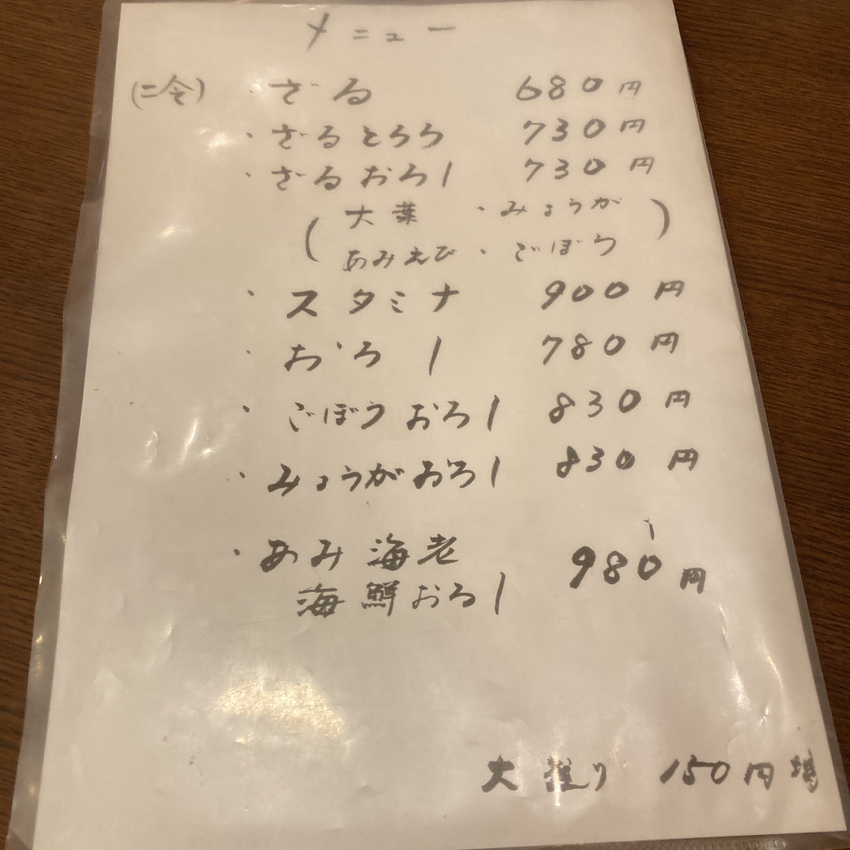 メニュー
・ざる 680円
・ざるとろろ 730円
・ざるおろし 730円
(大葉・みょうが
あみえび・ごぼう)
・スタミナ 900円
・おろし 780円
・ごぼうおろし 830円
・みょうがおろし 830円
・あみ海老 980円
海鮮おろし
大盛り 150円増